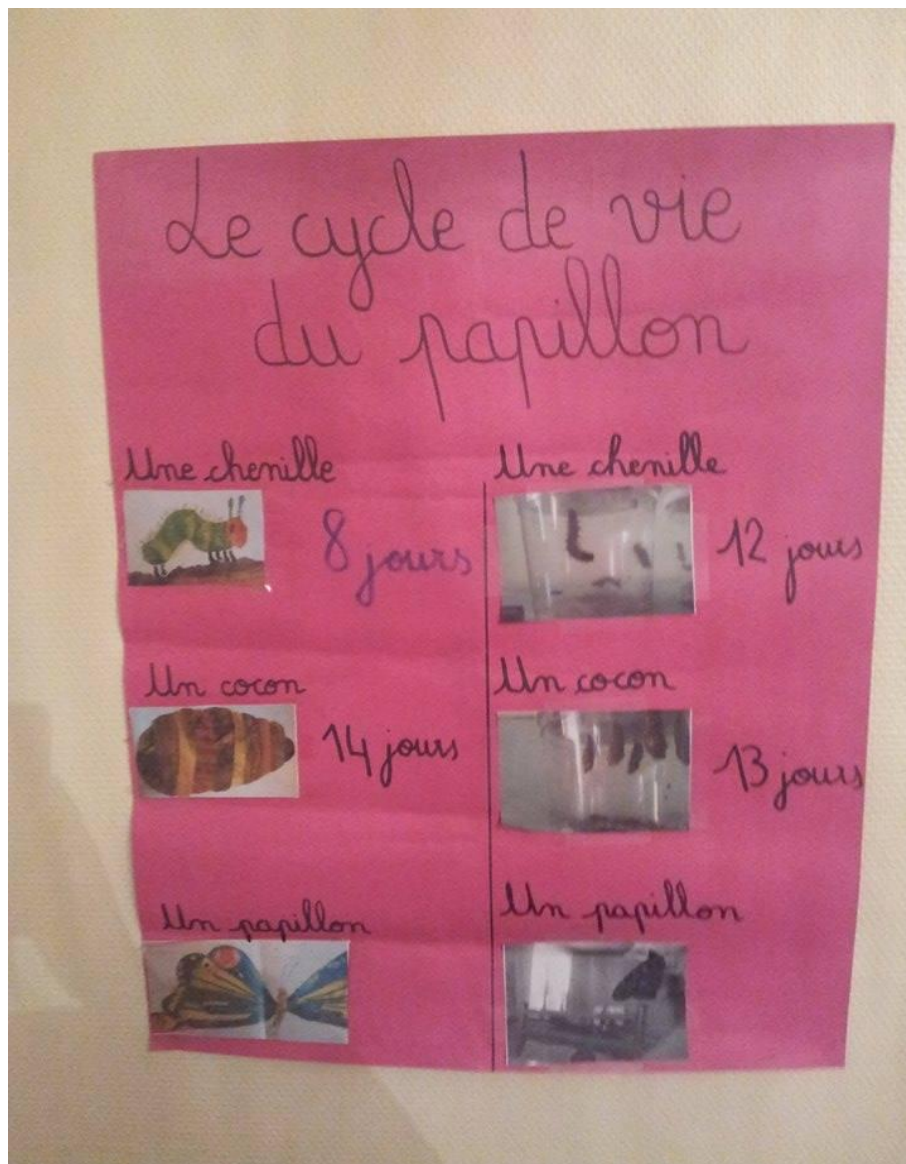 Le cycle de vie
du papillon
Une chenille
8 jours
Un cocon
14 jours
Un papillon
Une chenille
12 jours
Un cocon
13 jours
Un papillon